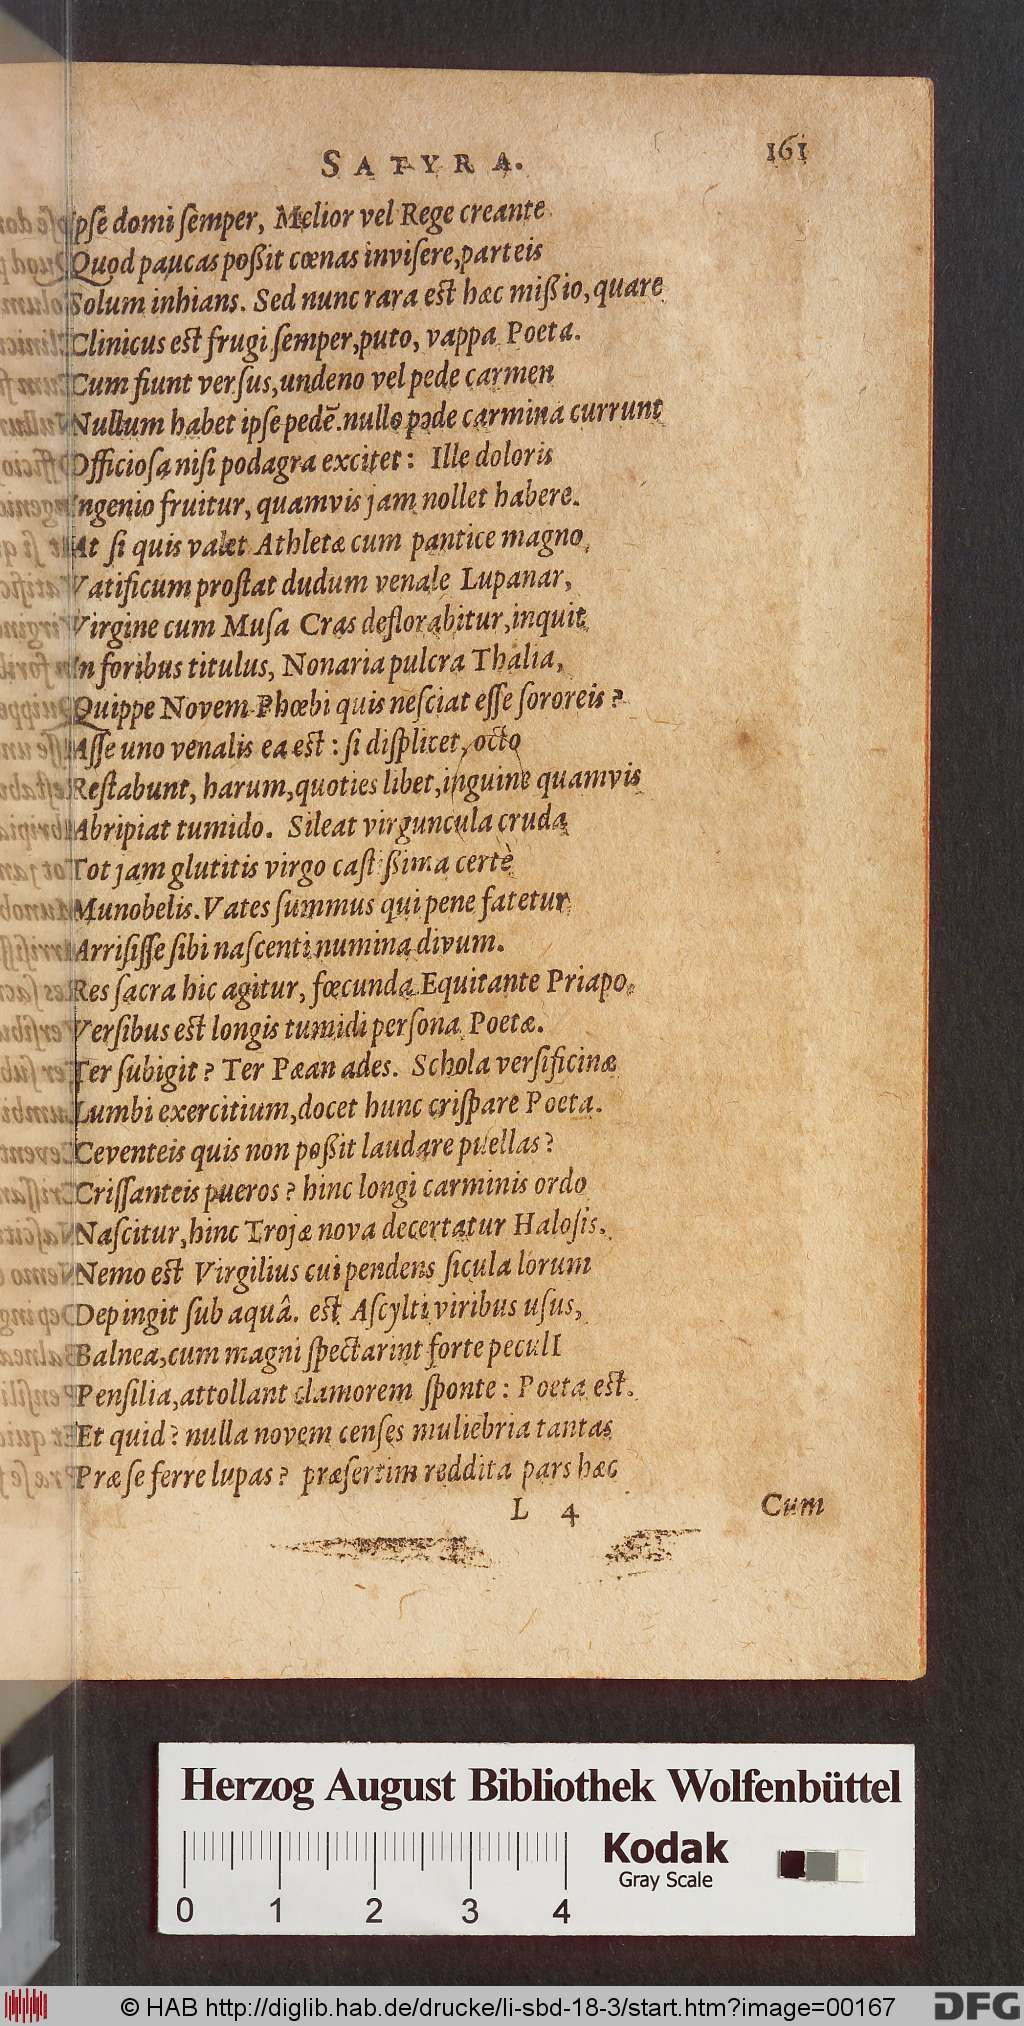 SATYRA. 161
Ipſe domi ſemper, Melior vel Rege creante
Quod paucas poßit cœnas inviſere, parteis
Solum inhians. Sed nunc rara est hæc mißio, quare
Clinicus est frugi ſemper, puto, vappa Poeta.
Cum fiunt verſus, undeno vel pede carmen
Nullum habet ipſe pedē. nullo pede carmina currunt
Officioſa niſi podagra excitet: Ille doloris
Ingenio fruitur, quamvis jam nollet habere.
At ſi quis valet Athletæ cum pantice magno,
Vatificum proſtat dudum venale Lupanar,
Virgine cum Muſa Cras deflorabitur, inquit
In foribus titulus, Nonaria pulcra Thalia,
Quippe Novem Phœbi quis neſciat eſſe ſororeis?
Aſſe uno venalis ea est: ſi diſplicet, octo
Reſtabunt, harum, quoties libet, inguine quamvis
Abripiat tumido. Sileat virguncula cruda
Tot jam glutitis virgo caſtißima certè
Munobelis. Vates ſummus qui pene fatetur
Arriſiſſe ſibi naſcenti numina divum.
Res ſacra hic agitur, fœcunda Equitante Priapo.
Verſibus est longis tumidi perſona Poetæ.
Ter ſubigit? Ter Pæan ades. Schola verſificinæ
Lumbi exercitium, docet hunc criſpare Poeta.
Ceventeis quis non poßit laudare puellas?
Criſſanteis pueros? hinc longi carminis ordo
Naſcitur, hinc Trojæ nova decertatur Haloſis.
Nemo est Virgilius cui pendens ſicula lorum
Depingit ſub aquâ. est Aſcylti viribus uſus,
Balnea, cum magni ſpectarint forte peculI
Penſilia, attollant clamorem ſponte: Poeta est.
Et quid? nulla novem cenſes muliebria tantas
Præ ſe ferre lupas? præſertim reddita pars hæc
L 4 Cum
Herzog August Bibliothek Wolfenbüttel
Kodak
Gray Scale
0 1 2 3 4
© HAB http://diglib.hab.de/drucke/li-sbd-18-3/start.htm?image=00167 DFG